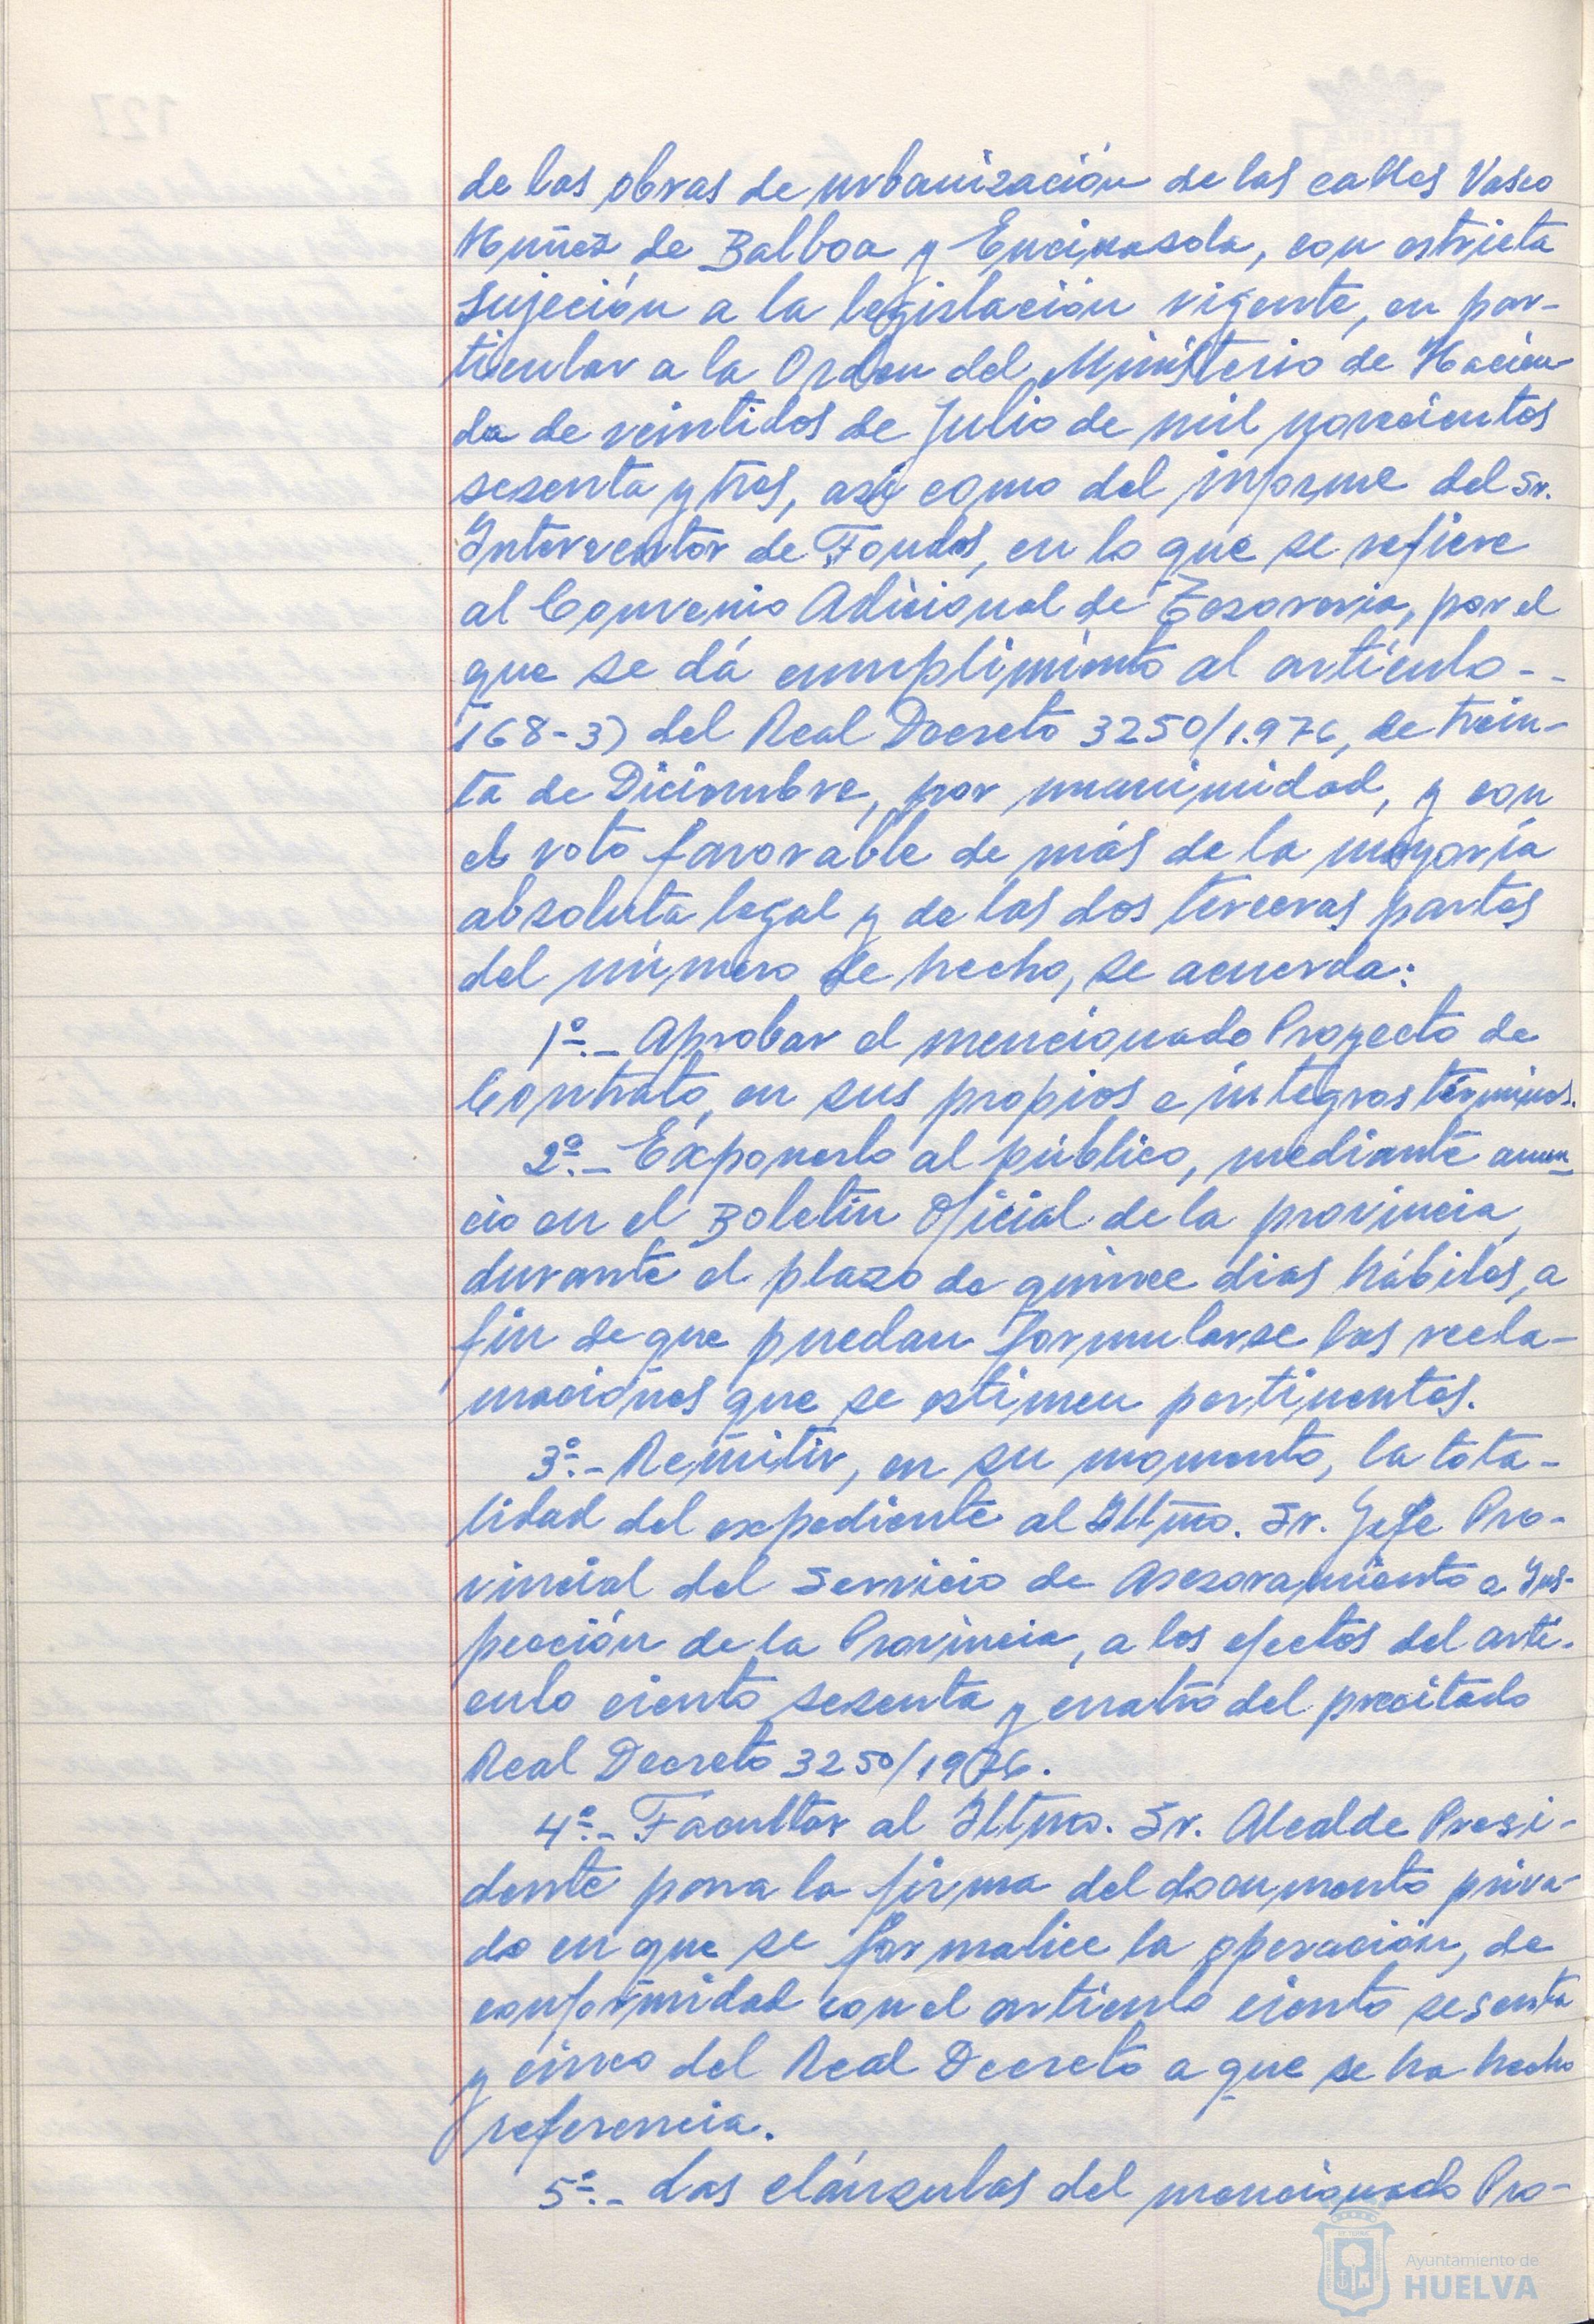 de las obras de urbanización de las calles Vasco
Nuñez de Balboa y Encinasola, con estricta
sujeción a la legislación vigente, en par-
ticular a la Orden del Ministerio de Hacien-
da de veintidos de Julio de mil novecientos
sesenta y tres, así como del informe del Sr.
Interventor de Fondos, en lo que se refiere
al Convenio Adicional de Tesorería, por el
que se dá cumplimiento al artículo--
168-3) del Real Decreto 3250/1.976, de trein-
ta de Diciembre, por unanimidad, y con
el voto favorable de más de la mayoría
absoluta legal y de las dos terceras partes
del número de hecho, se acuerda:
1º.- Aprobar el mencionado Proyecto de
Contrato, en sus propios e integros términos.
2º.- Exponerlo al público, mediante anun-
cio en el Boletín Oficial de la provincia,
durante el plazo de quince dias hábiles, a
fin de que puedan formularse las recla-
maciones que se estimen pertinentes.
3º.- Remitir, en su momento, la tota-
lidad del expediente al Iltmo. Sr. Jefe Pro-
vincial del Servicio de Asesoramiento e Ins-
pección de la Provincia, a los efectos del artí-
culo ciento sesenta y cuatro del precitado
Real Decreto 3250/1976.
4º.- Facultar al Iltmo. Sr. Alcalde Presi-
dente para la firma del documento priva-
do en que se formalice la operación, de
conformidad con el artículo ciento sesenta
y cinco del Real Decreto a que se ha hecho
referencia.
5º.- Las cláusulas del mencionado Pro-
Ayuntamiento de
HUELVA